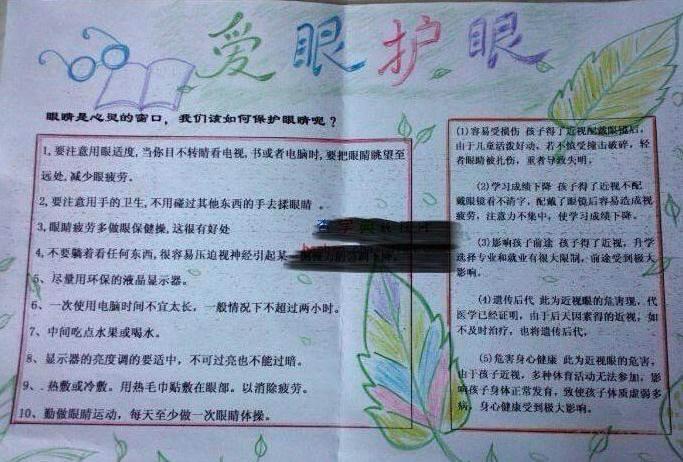 爱眼护眼
眼睛是心灵的窗口，我们该如何保护眼睛呢？
1,要注意用眼适度,当你目不转睛看电视,书或者电脑时,要把眼睛眺望至
远处,减少眼疲劳。
2,要注意用手的卫生,不用碰过其他东西的手去揉眼睛 。
3,眼睛疲劳多做眼保健操,这很有好处
4,不要躺着看任何东西,很容易压迫视神经引起某
5、尽量用环保的液晶显示器。
6、一次使用电脑时间不宜太长，一般情况下不超过两小时。
7、中间吃点水果或喝水。
8、显示器的亮度调的要适中，不可过亮也不能过暗。
9、.热敷或冷敷。用热毛巾贴敷在眼部。以消除疲劳。
10、勤做眼睛运动，每天至少做一次眼睛体操。
(1)容易受损伤 孩子得了近视配戴眼镜后，
由于儿童活泼好动、若不慎受撞击破碎，轻
者眼睛被扎伤，重者导致失明。
(2)学习成绩下降 孩子得了近视不配
戴眼镜看不清字，配戴了眼镜后容易造成视
疲劳，注意力不集中，使学习成绩下降。
(3)影响孩子前途 孩子得了近视，升学
选择专业和就业有很大限制，前途受到极大
影响。
(4)遗传后代 此为近视眼的危害现，代
医学已经证明，由于后天因素得的近视，如
不及时治疗，也将遗传后代，
(5)危害身心健康 此为近视眼的危害，
由于孩子近视，多种体育活动无法参加，影
响孩子身体正常发育，致使孩子体质虚弱多
病，身心健康受到极大影响。